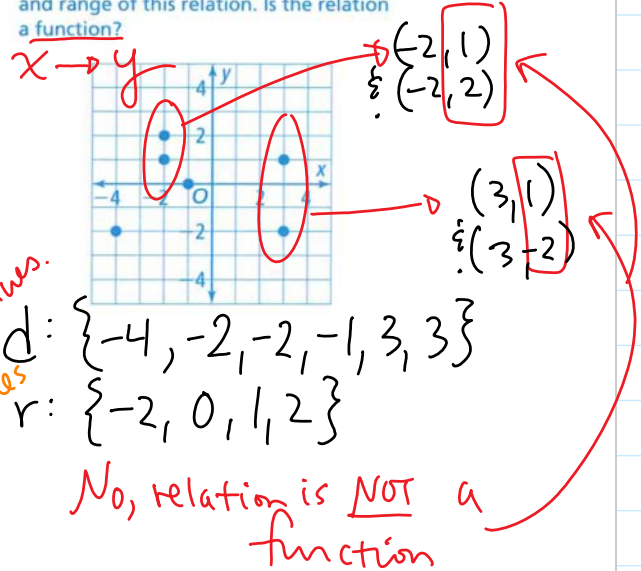 and range of this relation. Is the relation
a function?
x → y
(-2, 1)
& (-2, 2)
y
4
2
x
-4
-2
O
2
4
-2
-4
(3, 1)
& (3, -2)
d: {-4, -2, -2, -1, 3, 3}
r: {-2, 0, 1, 2}
No, relation is NOT a
function